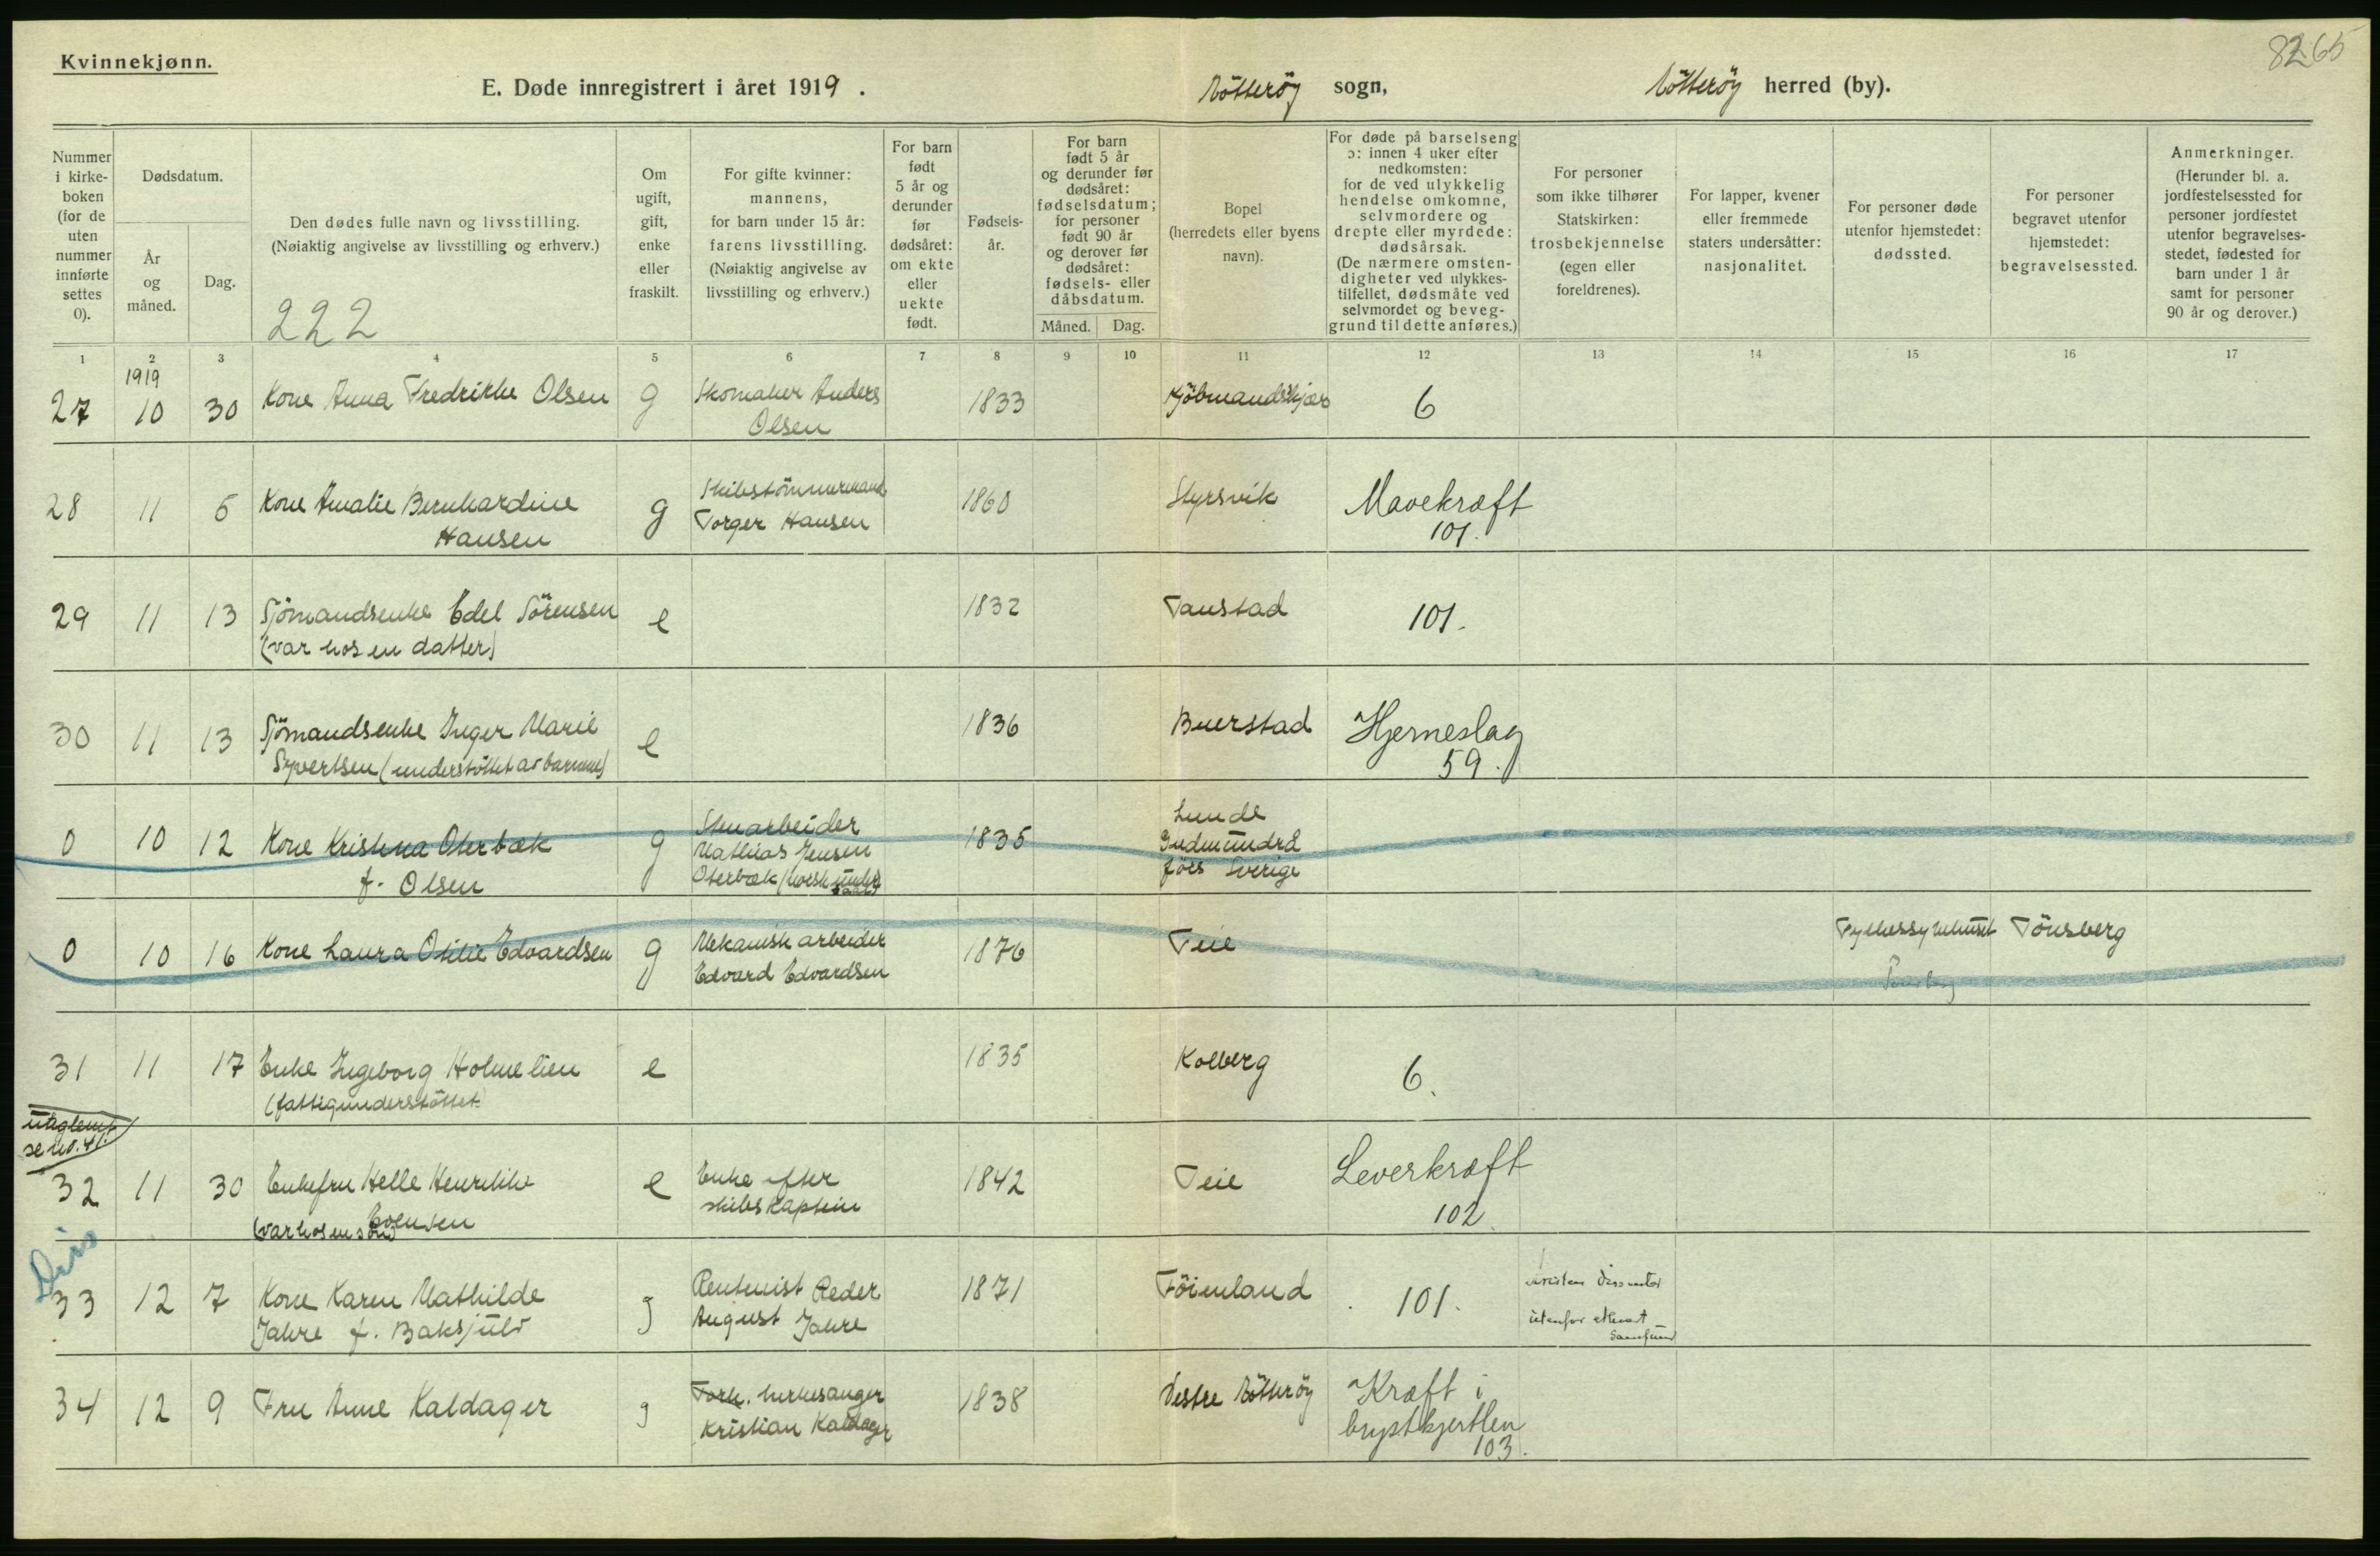 Kvinnekjønn.
8265
E. Døde innregistrert i året 1919. Nötteröy sogn, Nötteröy herred (by).
Nummer i kirke-boken (for de uten nummer innførte settes 0).
Dødsdatum.
År og måned.
Dag.
Den dødes fulle navn og livsstilling.
(Nøiaktig angivelse av livsstilling og erhverv.)
222
Om ugift, gift, enke eller fraskilt.
For gifte kvinner: mannens, for barn under 15 år: farens livsstilling. (Nøiaktig angivelse av livsstilling og erhverv.)
For barn født 5 år og derunder før dødsåret: om ekte eller uekte født.
Fødsels-år.
For barn født 5 år og derunder før dødsåret: fødselsdatum; for personer født 90 år og derover før dødsåret: fødsels- eller dåbsdatum.
Måned. Dag.
Bopel (herredets eller byens navn).
For døde på barselseng ɔ: innen 4 uker efter nedkomsten: for de ved ulykkelig hendelse omkomne, selvmordere og drepte eller myrdede: dødsårsak. (De nærmere omsten-digheter ved ulykkes-tilfellet, dødsmåte ved selvmordet og beveg-grund til dette anføres.)
For personer som ikke tilhører Statskirken: trosbekjennelse (egen eller foreldrenes).
For lapper, kvener eller fremmede staters undersåtter: nasjonalitet.
For personer døde utenfor hjemstedet: dødssted.
For personer begravet utenfor hjemstedet: begravelsessted.
Anmerkninger. (Herunder bl. a. jordfestelsessted for personer jordfestet utenfor begravelses-stedet, fødested for barn under 1 år samt for personer 90 år og derover.)
1 2 3 4 5 6 7 8 9 10 11 12 13 14 15 16 17
1919
27 10 30 Kone Anna Fredrikke Olsen g Skomaker Anders Olsen 1833 Kjöbmandskjær 6
28 11 5 Kone Amalie Bernhardine Hansen g Skibstömmermand Torger Hansen 1860 Styrsvik Mavekræft 101.
29 11 13 Sjömandsenke Edel Sörensen (var hos en datter) e 1832 Tanstad 101.
30 11 13 Sjömandsenke Inger Marie Syvertsen (understöttet av barnene) e 1836 Buerstad Hjerneslag 59.
0 10 12 Kone Kristina Oterbæk f. Olsen g Stenarbeider Mathias Jensen Oterbæk (norsk undersaat) 1835 Lunde Gudmundrå förs Sverige
0 10 16 Kone Laura Otilie Edvardsen g Mekanisk arbeider Edvard Edvardsen 1876 Teie Fylkessykehuset Tönsberg
31 11 17 Enke Ingeborg Holmelien (fattigunderstöttet e 1835 Kolberg 6.
utaglemt se no. 41.
32 11 30 Enkefru Helle Henrikke Evensen (var hos en sön) e Enke efter skibskaptein 1842 Teie Leverkræft 102.
Diss
33 12 7 Kone Karen Mathilde Jahre f. Baksjuly g Rentenist Reder August Jahre 1871 Föinland 101. kristen dissenter utenfor ethvert samfund
34 12 9 Fru Anne Kaldager g Forh. kirkesanger Kristian Kaldager 1838 Vestre Nötteröy Kræft i brystkjertlen 103.